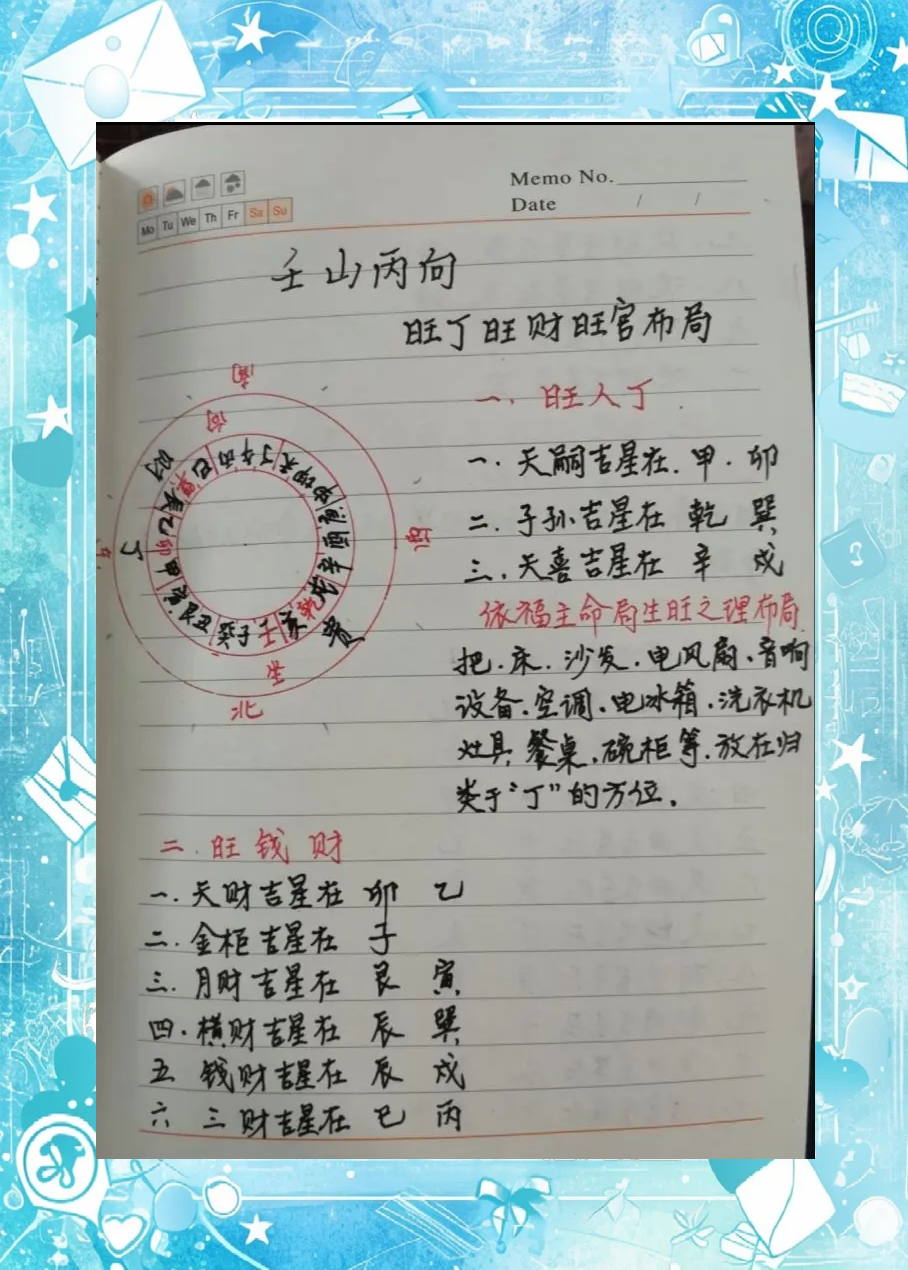 Memo No.
Date / /
Mo Tu We Th Fr Sa Su
壬山丙向
旺丁旺财旺官布局
一、旺人丁
一.天嗣吉星在.甲.卯
二.子孙吉星在 乾 巽
三.天喜吉星在 辛 戌
依福主命局生旺之理布局
把.床.沙发.电风扇.音响
设备.空调.电冰箱.洗衣机
灶具.餐桌.碗柜等.放在归
类于“丁”的方位。
南
向
财
巳丙午丁未坤申庚酉辛戌乾亥壬子癸丑艮寅甲卯乙辰巽
丁
贵
坐
北
二.旺钱财
一.天财吉星在 卯 乙
二.金柜吉星在 子
三.月财吉星在 艮 寅
四.横财吉星在 辰 巽
五 钱财吉星在 辰 戌
六 三财吉星在 巳 丙